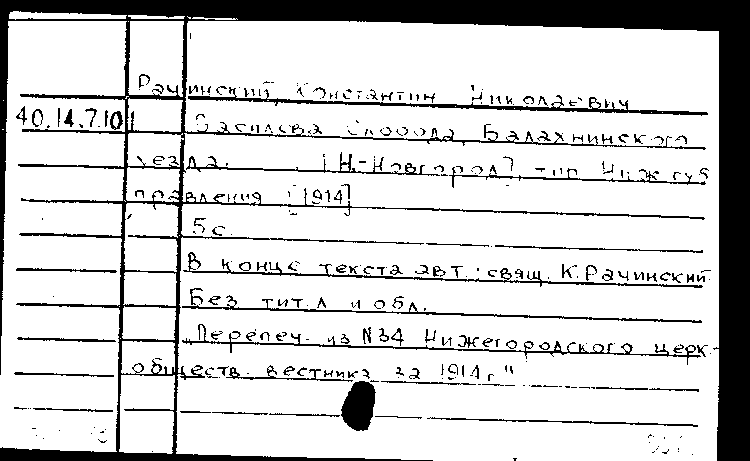 Рачинский, Константин Николаевич
40.14.7.101 Василева Слобода, Балахнинского
уезда. [Н-Новгород], тип. Ниж губ
правления [1914]
5с
В конце текста авт.: свящ. К. Рачинский
Без тит. л и обл.
„Перепеч. из N34 Нижегородского церк.-
обществ. вестника за 1914г"